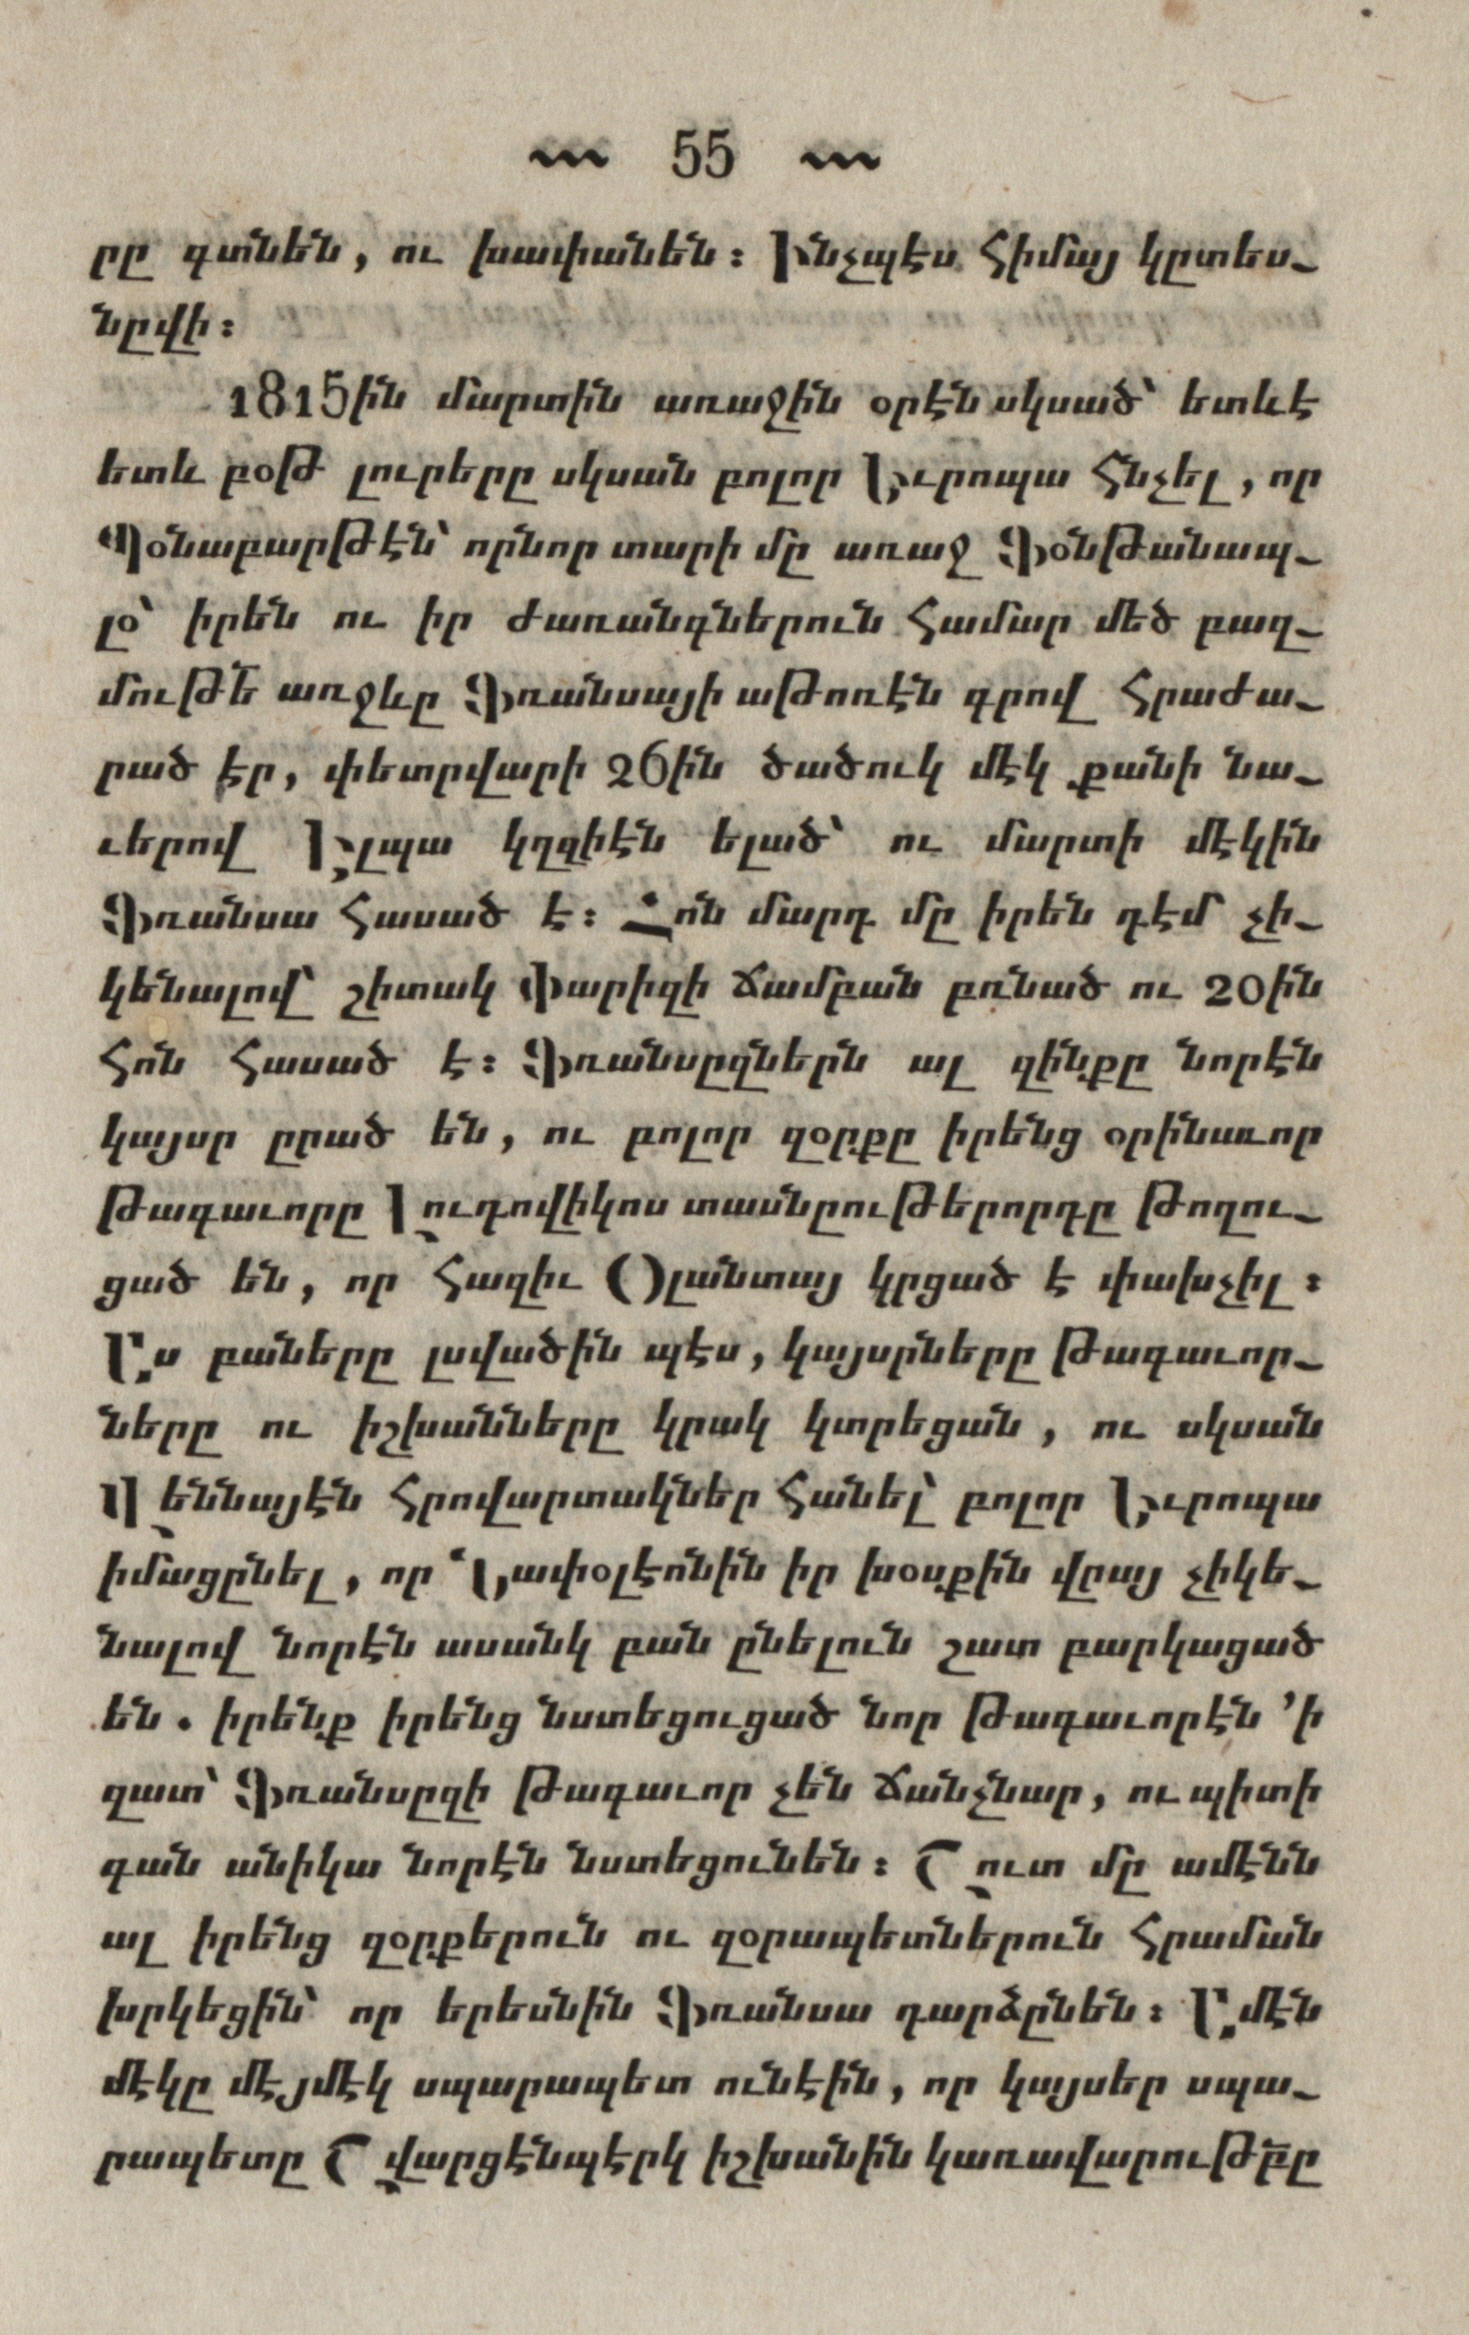 55
րը գտնեն, ու խափանեն։ Ինչպէս հիմայ կըտես֊
նըվի։
1815ին մարտին առաջին օրէն սկսած՝ ետևէ
ետև բօթ լուրերը սկսան բոլոր Եւրոպա հնչել, որ
Պօնաբարթէն՝ որնոր տարի մը առաջ Ֆօնթանապ֊
լօ՝ իրեն ու իր ժառանգներուն համար մեծ բազ֊
մութե՟ առջևը Ֆռանսայի աթոռէն գրով հրաժա֊
րած էր, փետրվարի 26ին ծածուկ մէկ քանի նա֊
ւերով Էլպա կղզիէն ելած՝ ու մարտի մէկին
Ֆռանսա հասած է։ Հոն մարդ մը իրեն դէմ չի֊
կենալով՝ շիտակ Փարիզի ճամբան բռնած ու 20ին
հոն հասած է։ Ֆռանսըզներն ալ զինքը նորէն
կայսր ըրած են, ու բոլոր զօրքը իրենց օրինաւոր
թագաւորը Լուդովիկոս տասնըութերորդը թողու֊
ցած են, որ հազիւ Օլանտայ կրցած է փախչիլ։
Աս բաները լսվածին պէս, կայսրները թագաւոր֊
ները ու իշխանները կրակ կտրեցան, ու սկսան
Վեննայէն հրովարտակներ հանել՝ բոլոր Եւրոպա
իմացընել, որ Նափօլէոնին իր խօսքին վըայ չիկե֊
նալով նորէն ասանկ բան ընելուն շատ բարկացած
են. իրենք իրենց նստեցուցած նոր թագաւորէն ՚ի
զատ՝ Ֆռանսըզի թագաւոր չեն ճանչնար, ու պիտի
գան անիկա նորէն նստեցունեն։ Շուտ մը ամէնն
ալ իրենց զօրքերուն ու զօրապետներուն հրաման
խրկեցին՝ որ երեսնին Ֆռանսա դարձընեն։ Ամէն
մէկը մէյմէկ սպարապետ ունէին, որ կայսեր սպա֊
րապետը Շվարցէնպէրկ իշխանին կառավարութբ՟ը